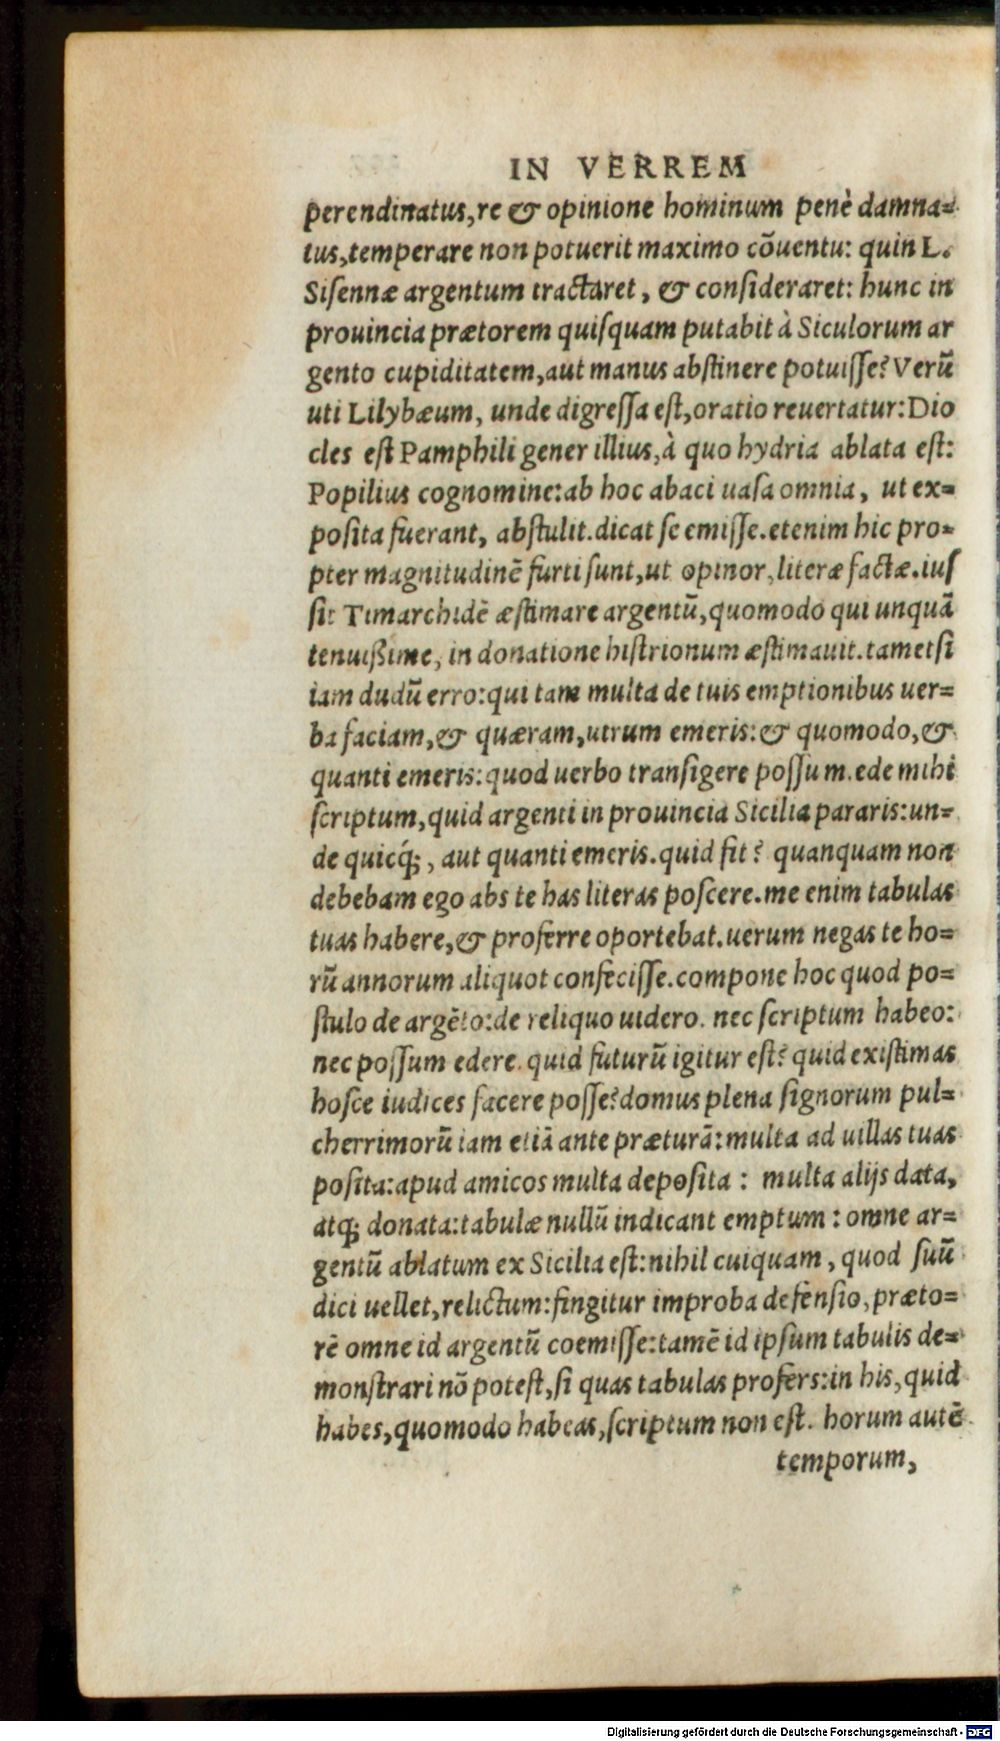 IN VERREM
perendinatus, re & opinione hominum penè damna=
tus, temperare non potuerit maximo cõuentu: quin L.
Sisennæ argentum tractaret, & consideraret: hunc in
prouincia prætorem quisquam putabit à Siculorum ar
gento cupiditatem, aut manus abstinere potuisse? Verũ
uti Lilybæum, unde digressa est, oratio reuertatur: Dio
cles est Pamphili gener illius, à quo hydria ablata est:
Popilius cognomine: ab hoc abaci uasa omnia, ut ex=
posita fuerant, abstulit. dicat se emisse. etenim hic pro=
pter magnitudinẽ furti sunt, ut opinor, literæ factæ. ius
sit Timarchidẽ æstimare argentũ, quomodo qui unquã
tenuißime, in donatione histrionum æstimauit. tametsi
iam dudũ erro: qui tam multa de tuis emptionibus uer=
ba faciam, & quæram, utrum emeris: & quomodo, &
quanti emeris: quod uerbo transigere possum. ede mihi
scriptum, quid argenti in prouincia Sicilia pararis: un=
de quicq́;, aut quanti emeris. quid fit? quanquam non
debebam ego abs te has literas poscere. me enim tabulas
tuas habere, & proferre oportebat. uerum negas te ho=
rũ annorum aliquot confecisse. compone hoc quod po=
stulo de argẽto: de reliquo uidero. nec scriptum habeo:
nec possum edere. quid futurũ igitur est? quid existimas
hosce iudices facere posse? domus plena signorum pul=
cherrimorũ iam etiã ante præturã: multa ad uillas tuas
posita: apud amicos multa deposita: multa alijs data,
atq; donata: tabulæ nullũ indicant emptum: omne ar=
gentũ ablatum ex Sicilia est: nihil cuiquam, quod suũ
dici uellet, relictum: fingitur improba defensio, præto=
rẽ omne id argentũ coemisse: tamẽ id ipsum tabulis de=
monstrari nõ potest, si quas tabulas profers: in his, quid
habes, quomodo habeas, scriptum non est. horum autẽ
temporum,
Digitalisierung gefördert durch die Deutsche Forschungsgemeinschaft - DFG